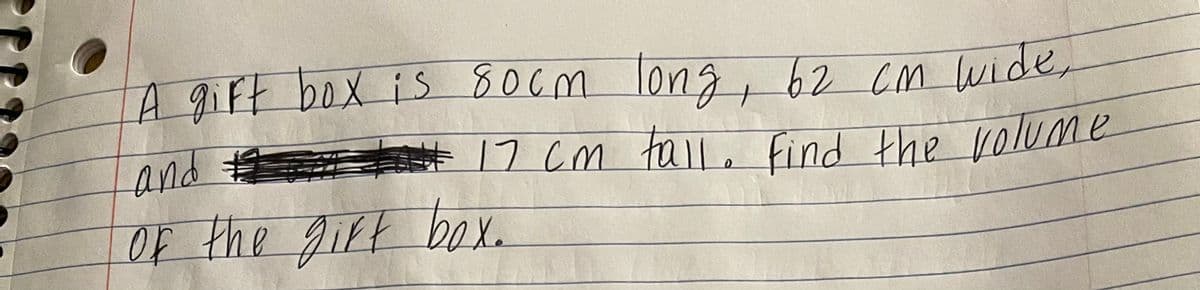 A gift box is 80cm long, 62 cm wide,
and 17 cm tall. Find the volume
of the gift box.